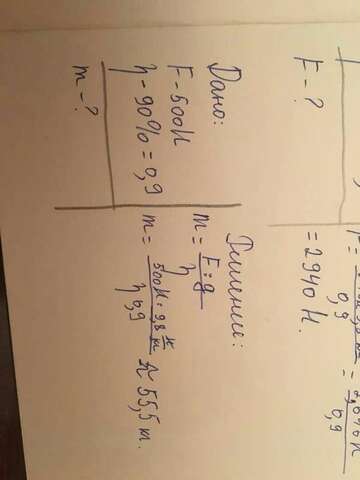 F - ?
= 2940 Н.
Дано:
F - 500 Н
η - 90% = 0,9
m - ?
Решение:
m = F : g / η
m = 500Н : 9,8 Н/кг / η 0,9 ≈ 55,5 т.